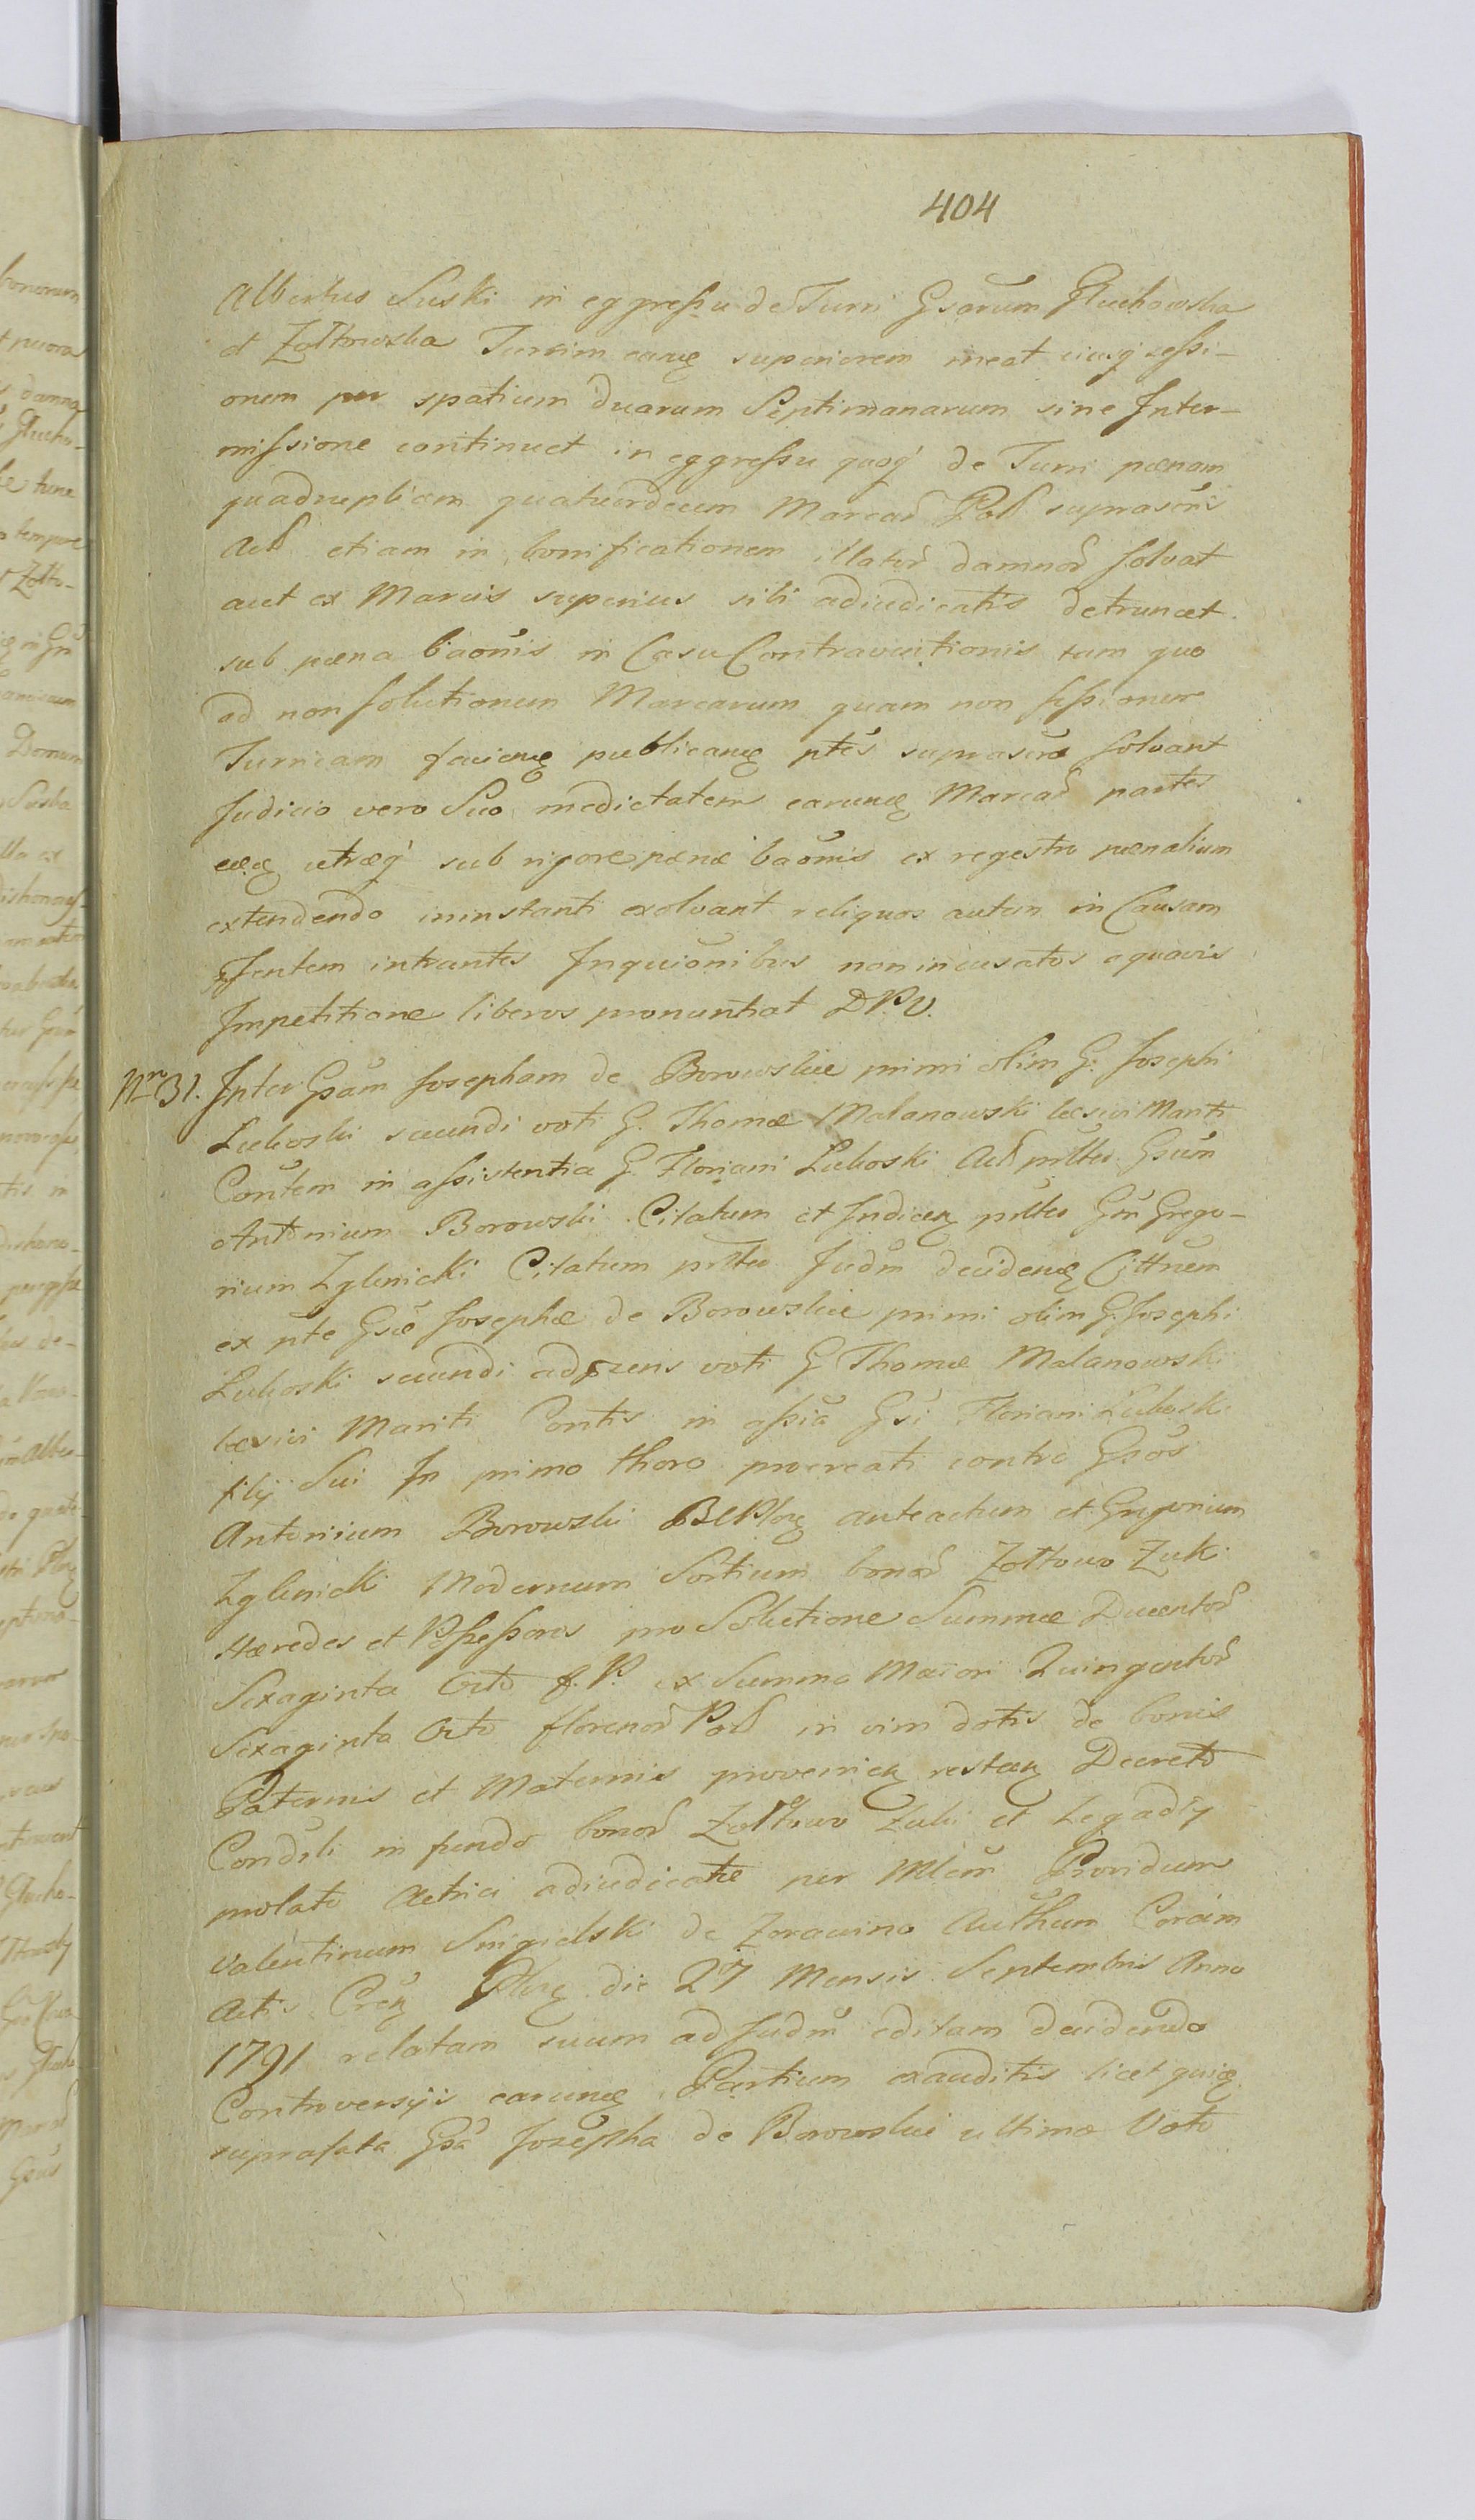 404
Albertus Suski in eggressu de Turri Gsarum Głuchowska
et Zołtowska Turrim eanđ superiorem ineat eiusq́ sessi-
onem per spatium duarum Septimanarum sine Inter-
missione continuet in eggressu quoq́ de Turri pænam
quadruplicem quatuordecim Marcar Pol suprascris
Act etiam in bonificationem illator damnor solvat
aut ex Marcis superius sibi adiudicatis detruncet.
sub pæna baōnis in Casu Contraventionis tam quo
ad non solutionem Marcarum quam non sessionem
Turricam publicanđ ptēs suprascrā solvant
Judicio vero Suo medietatem earunđ Marcar partes
eæđ utræq́ sub rigore pænæ baōnis ex regestro pænalium
extendendo ininstanti exolvant reliquos autem in Causam
psentem intrantes Inquiōnibus non incusatos a quavis
Impetitione liberos pronuntiat D.P.V.
Nro 31. Inter Gsām Josepham de Borowskie primi olim G. Josephi
Lukoski secundi voti G. Thomæ Malanowski læsivi Mariti
Coñtem in assistentia G. Floriani Lukoski Act psltєr Gsūm
Antonium Borowski Citatum et Indicen psltєr Gm Grego-
rium Zglenicki Citatum psltєr Judm decidenđ Cittnēm
ex pte Gsæ Josephæ de Borowskie primi olim G. Josephi
Lukoski secundi adprens voti G Thomæ Malanowski
læsivi Mariti Contis in assiā Gsi Floriani Lukoski
filij Sui In primo thoro procreati contra Gsōs
Antonium Borowski BCPłoc anteactum et Gregorium
Zglenicki Modernum Sortium bonor Zołtowo Zuki
Hæredes et Possessores pro Solutione Summæ Ducentor
Sexaginta Octo f. P. ex Summa Maiori Quingentor
Sexaginta Octo florenor Pol in vim dotis de bonis
Paternis et Maternis provenien restan Decreto
Condsli in fundo bonor Zołtowo Zuki et Legadzy
prolato Actrici adiudicatæ per Mlem Providum
Valentinum Smigielski de Zorawino Authum Coram
Actis Płoc die 27 Mensis Septembris Anno
1791 relatam suum ad Judm editam decidendo
Controversijs earunđ Partium exauditis licet quiđ
suprafata Gsa Josepha de Borowskie ultimæ Voto